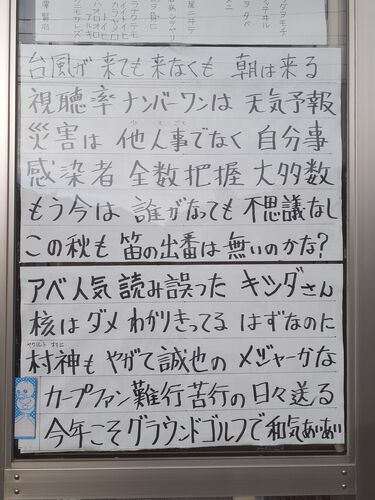 台風が 来ても来なくも 朝は来る
視聴率 ナンバーワンは 天気予報
災害は 他人事でなく 自分事
感染者 全数把握 大多数
もう今は 誰がなっても 不思議なし
この秋も 笛の出番は 無いのかな?
アベ人気 読み誤った キシダさん
核はダメ わかりきってる はずなのに
村神も やがて誠也の メジャーかな
カープファン 難行苦行の 日々送る
今年こそ グラウンドゴルフで 和気あいあい